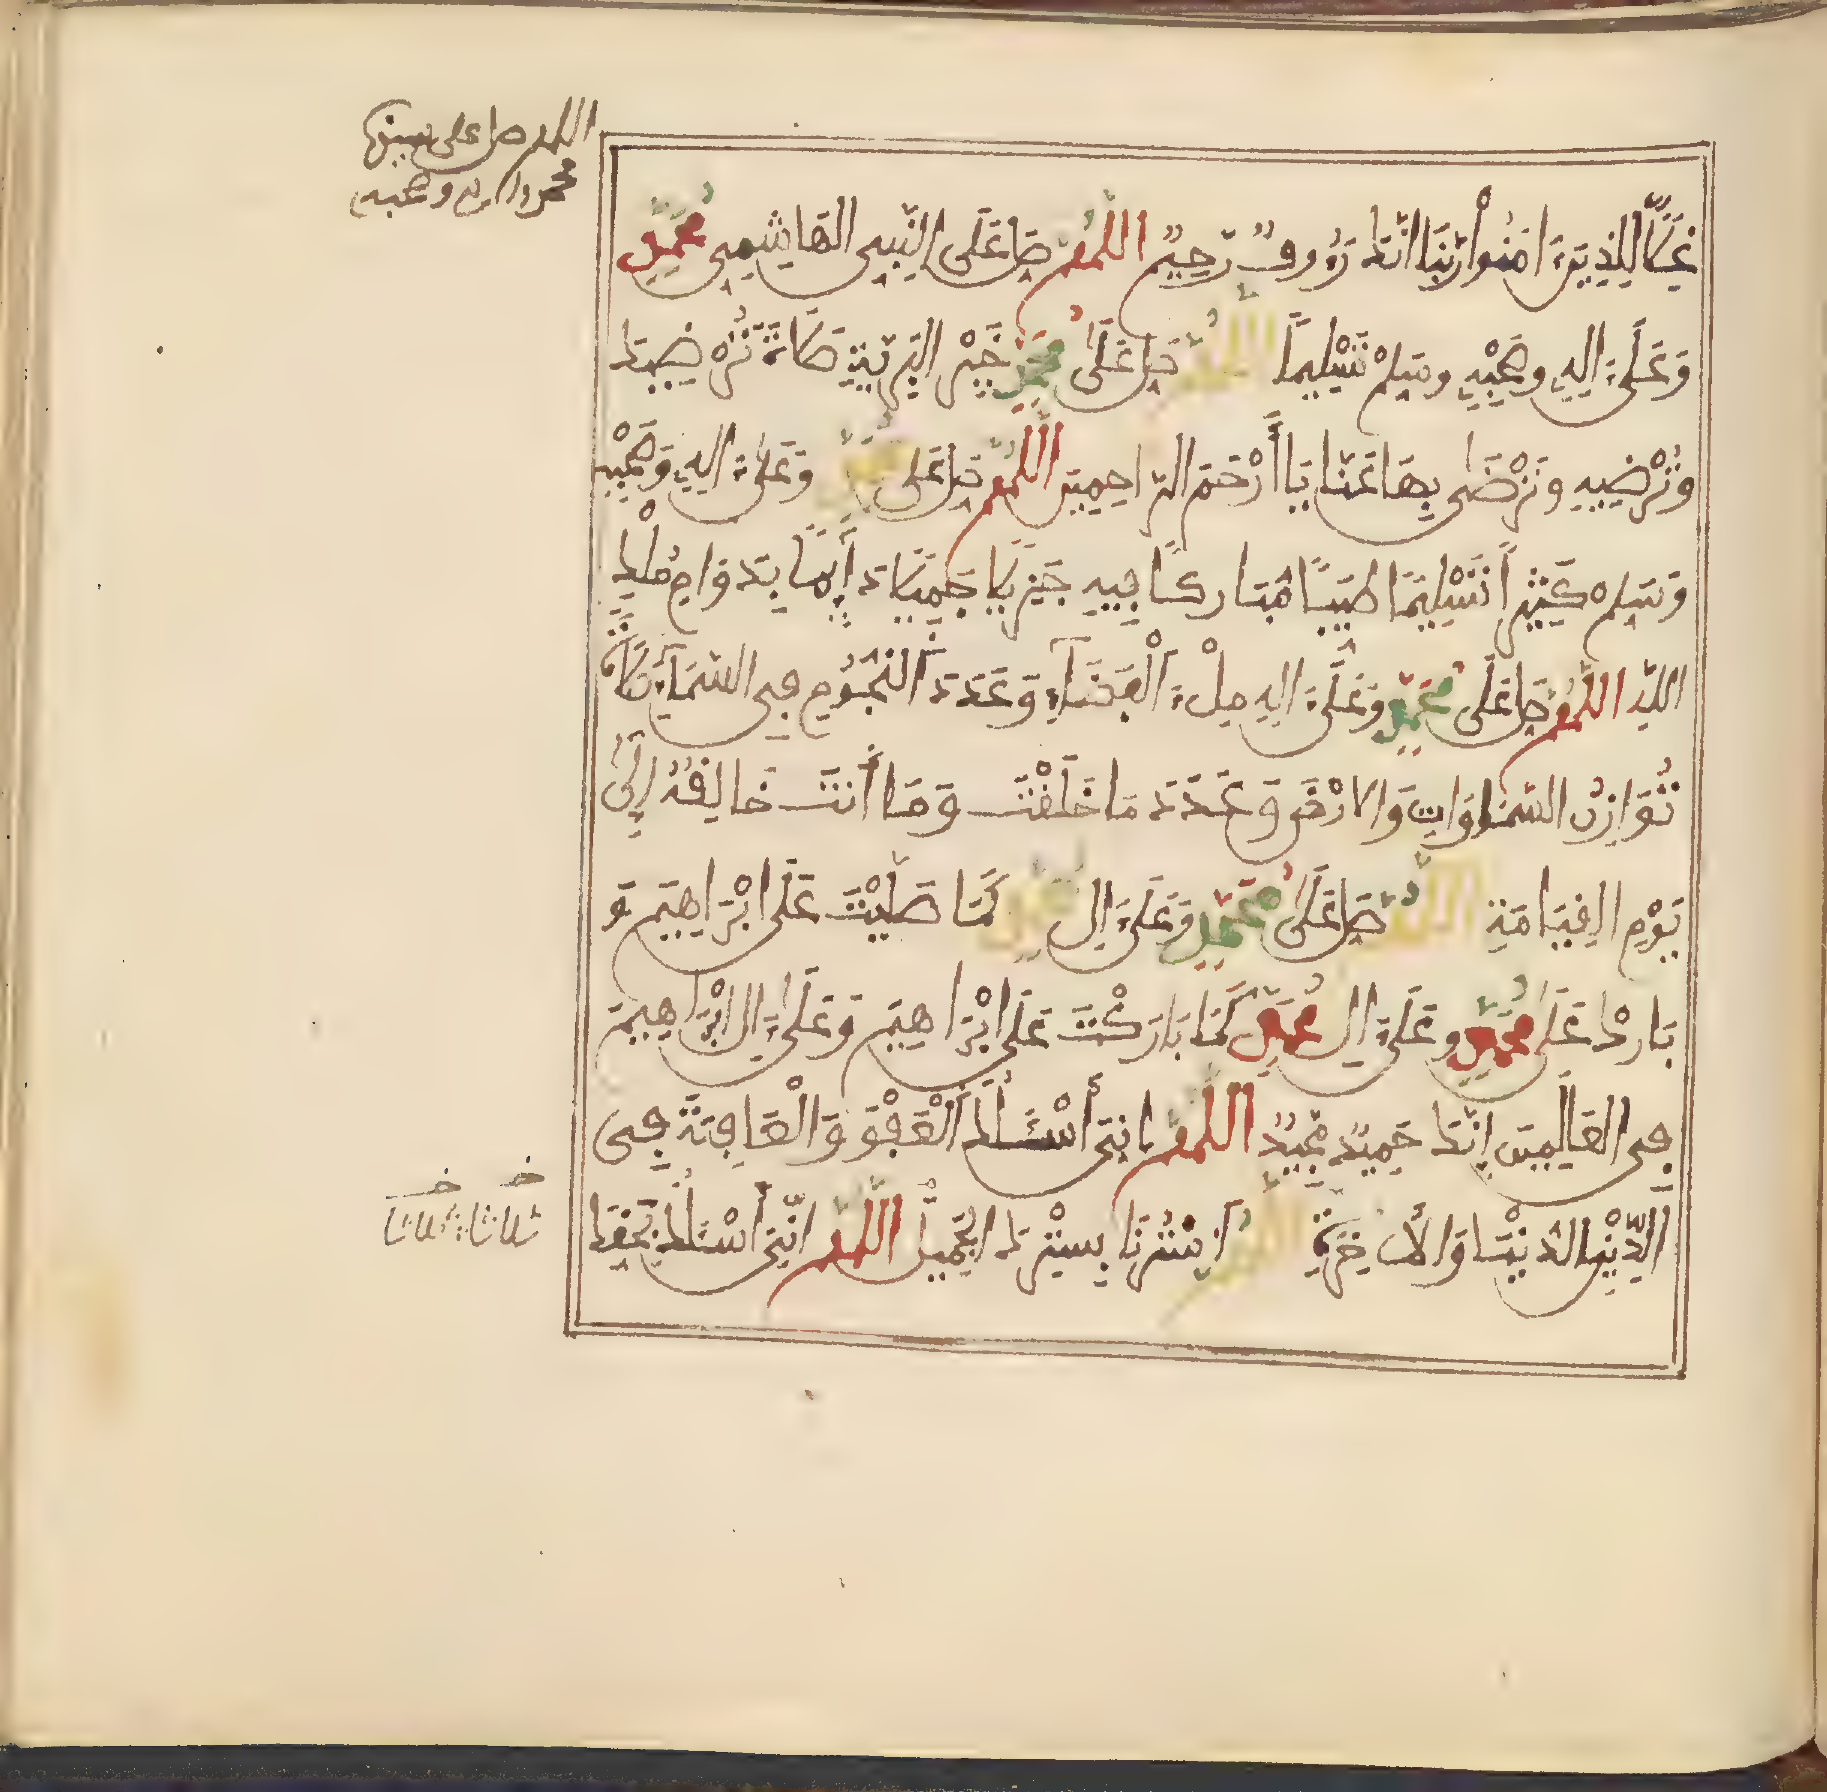 اللهم صل على سيدنا
محمد واله وصحبه
غِلًّا لِلَّذِينَ ءَامَنُوا رَبَّنَا إِنَّكَ رَءُوفٌ رَحِيمٌ اللَّهُمَّ صَلِّ عَلَى النَّبِيِّ الْهَاشِمِيِّ مُحَمَّدٍ
وَعَلَىٰ ءَالِهِ وَصَحْبِهِ وَسَلِّمْ تَسْلِيمًا اللَّهُمَّ صَلِّ عَلَىٰ مُحَمَّدٍ خَيْرِ الْبَرِيَّةِ صَلَاةً تُرْضِيكَ
وَتُرْضِيهِ وَتَرْضَىٰ بِهَا عَنَّا يَا أَرْحَمَ الرَّاحِمِينَ اللَّهُمَّ صَلِّ عَلَى مُحَمَّدٍ وَعَلَىٰ ءَالِهِ وَصَحْبِهِ
وَسَلِّمْ كَثِيرًا تَسْلِيمًا طَيِّبًا مُبَارَكًا فِيهِ جَزِيلًا جَمِيلًا دَائِمًا بِدَوَامِ مُلْكِ
اللَّهِ اللَّهُمَّ صَلِّ عَلَى مُحَمَّدٍ وَعَلَىٰ ءَالِهِ مِلْءَ الْفَضَاءِ وَعَدَدَ النُّجُومِ فِي السَّمَاءِ صَلَاةً
تُوَازِنُ السَّمَاوَاتِ وَالارْضَ وَعَدَدَ مَا خَلَقْتَ وَمَا أَنْتَ خَالِقُهُ إِلَىٰ
يَوْمِ الْقِيَامَةِ اللَّهُمَّ صَلِّ عَلَىٰ مُحَمَّدٍ وَعَلَىٰ ءَالِ مُحَمَّدٍ كَمَا صَلَّيْتَ عَلَى إِبْرَاهِيمَ وَ
بَارِكْ عَلَىٰ مُحَمَّدٍ وَعَلَىٰ ءَالِ مُحَمَّدٍ كَمَا بَارَكْتَ عَلَى إِبْرَاهِيمَ وَعَلَىٰ ءَالِ إِبْرَاهِيمَ
فِي الْعَالَمِينَ إِنَّكَ حَمِيدٌ مَجِيدٌ اللَّهُمَّ إِنِّي أَسْئَلُكَ الْعَفْوَ وَالْعَافِيَةَ فِي
الدِّينِ وَالدُّنْيَا وَالْأَخِرَةِ اللَّهُمَّ اسْتُرْنَا بِسِتْرِكَ الْجَمِيلِ اللَّهُمَّ إِنِّي أَسْئَلُكَ بِحَقِّكَ
خـ خـ
ثلاثا ثلاثا